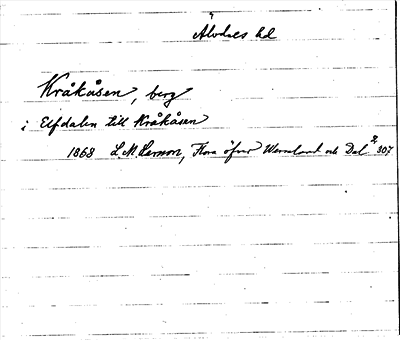 Älvdals hd
Kråkåsen, berg
i Elfdalen till Kråkåsen
1868 L. M. Larsson, Flora öfver Wermland och Dal 2, 307